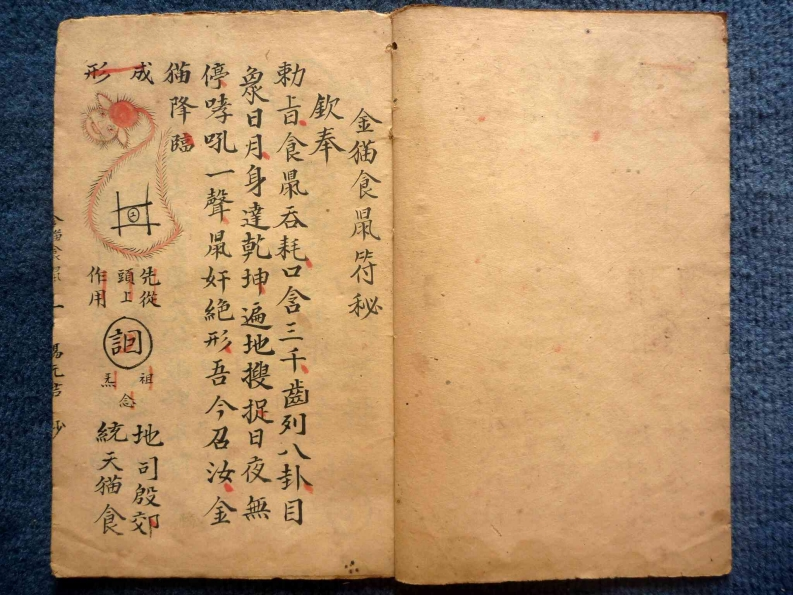 金猫食鼠符秘
欽奉
勅旨食鼠吞耗口含三千齒列八卦目
衆日月身達乾坤遍地搜捉日夜無
停哮吼一聲鼠奸絶形吾今召汝金
猫降臨
成
形
先從
頭上
作用
祖
念
地司殷郊
統天猫食